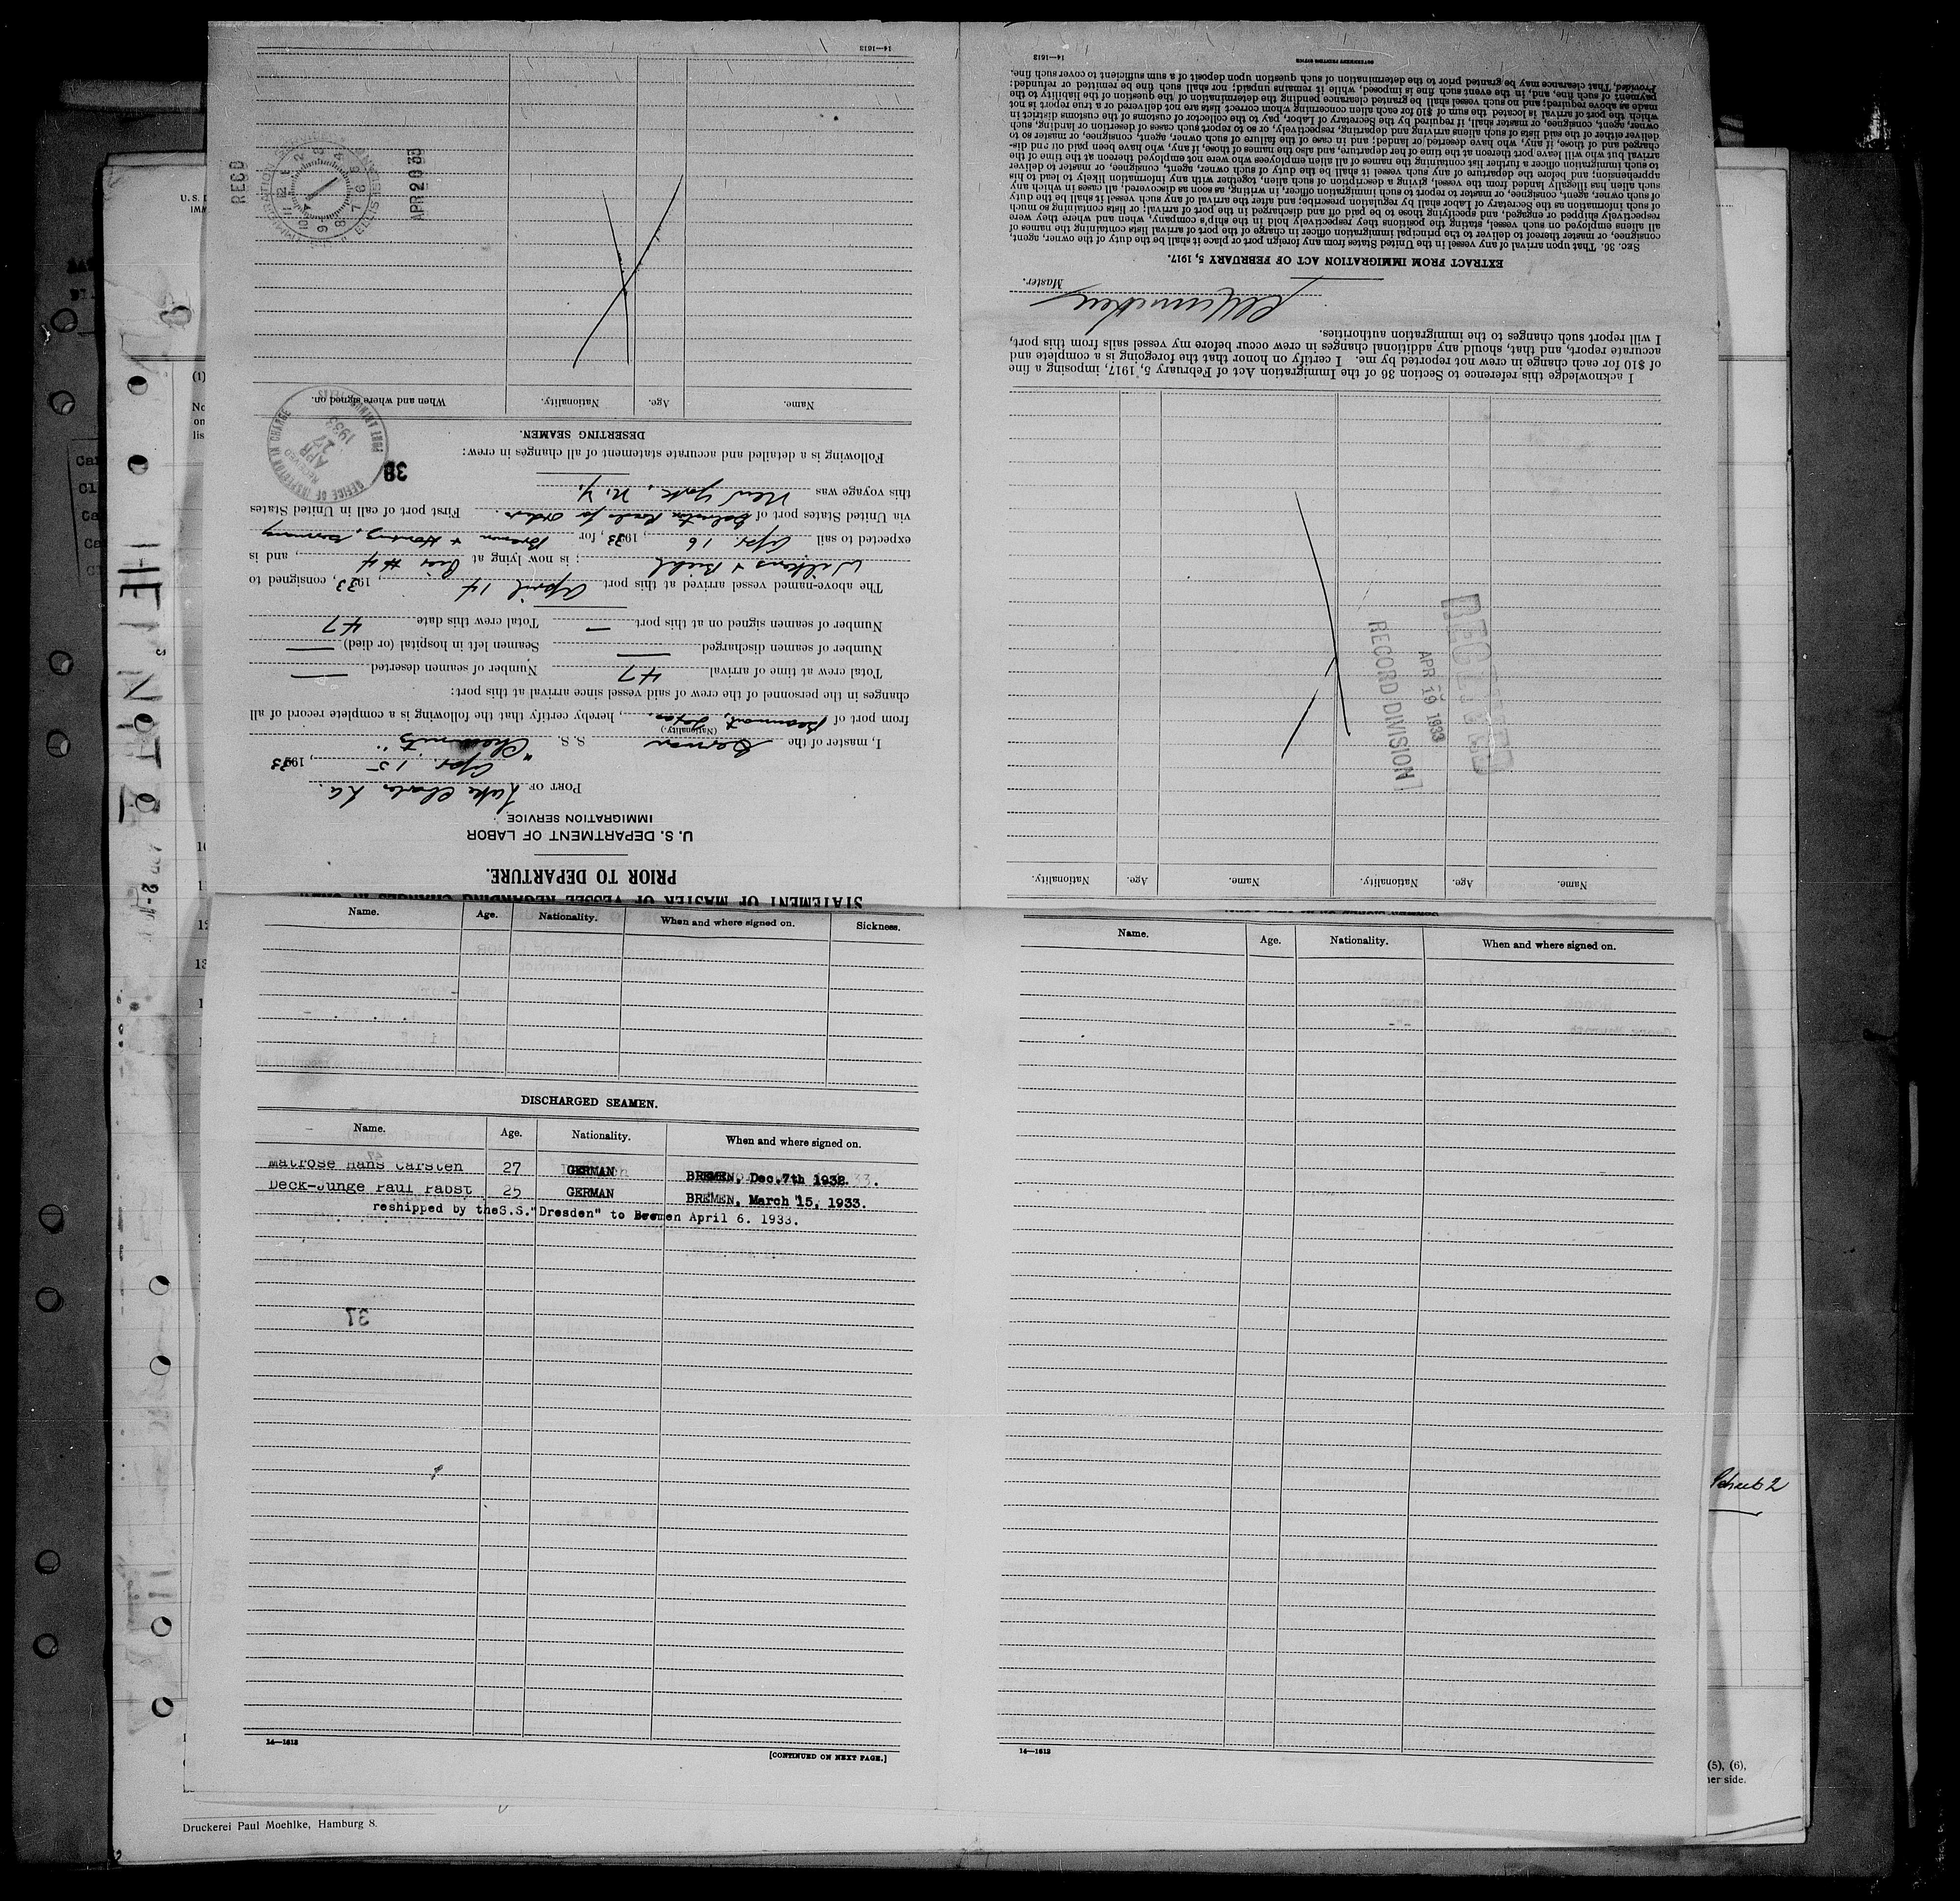 STATEMENT OF MASTER OF VESSEL REGARDING CHANGES IN CREW
PRIOR TO DEPARTURE.
U. S. DEPARTMENT OF LABOR
IMMIGRATION SERVICE
PORT OF Lake Charles La.
Apr. 15, 1933
I, master of the German S. S. "Chemnitz"
(Nationality.)
from port of Beaumont, Texas, hereby certify that the following is a complete record of all
changes in the personnel of the crew of said vessel since arrival at this port:
Total crew at time of arrival 47 Number of seamen deserted —
Number of seamen discharged — Seamen left in hospital (or died) —
Number of seamen signed on at this port — Total crew this date 47
The above-named vessel arrived at this port April 14, 1933, consigned to
Wilkens & Biehl; is now lying at Pier #4, and is
expected to sail Apr. 16, 1933, for Bremen & Hamburg, Germany
via United States port of Galveston Roads for orders. First port of call in United States
this voyage was New York, N.Y.
Following is a detailed and accurate statement of all changes in crew:
38
OFFICE OF INSPECTOR IN CHARGE
RECEIVED
APR
27
1933
DESERTING SEAMEN.
Name. Age. Nationality. When and where signed on.
REC'D
APR 20 33
ELLIS
14—1613
Name. Age. Nationality. Name. Age. Nationality.
RECEIVED
APR 19 1933
RECORD DIVISION
I acknowledge this reference to Section 36 of the Immigration Act of February 5, 1917, imposing a fine
of $10 for each change in crew not reported by me. I certify on honor that the foregoing is a complete and
accurate report, and that, should any additional changes in crew occur before my vessel sails from this port,
I will report such changes to the immigration authorities.
Master.
EXTRACT FROM IMMIGRATION ACT OF FEBRUARY 5, 1917.
SEC. 36. That upon arrival of any vessel in the United States from any foreign port or place it shall be the duty of the owner, agent,
consignee, or master thereof to deliver to the principal immigration officer in charge of the port of arrival lists containing the names of
all aliens employed on such vessel, stating the positions they respectively hold in the ship's company, when and where they were
respectively shipped or engaged, and specifying those to be paid off and discharged in the port of arrival; or lists containing so much
of such information as the Secretary of Labor shall by regulation prescribe; and after the arrival of any such vessel it shall be the duty
of such owner, agent, consignee, or master to report to such immigration officer, in writing, as soon as discovered, all cases in which any
such alien has illegally landed from the vessel, giving a description of such alien, together with any information likely to lead to his
apprehension; and before the departure of any such vessel it shall be the duty of such owner, agent, consignee, or master to deliver
to such immigration officer a further list containing the names of all alien employees who were not employed thereon at the time of the
arrival but who will leave port thereon at the time of her departure, and also the names of those, if any, who have been paid off and dis-
charged and of those, if any, who have deserted or landed; and in case of the failure of such owner, agent, consignee, or master so to
deliver either of the said lists of such aliens arriving and departing, respectively, or so to report such cases of desertion or landing, such
owner, agent, consignee, or master shall, if required by the Secretary of Labor, pay to the collector of customs of the customs district in
which the port of arrival is located the sum of $10 for each alien concerning whom correct lists are not delivered or a true report is not
made as above required; and no such vessel shall be granted clearance pending the determination of the question of the liability to the
payment of such fine, and, in the event such fine is imposed, while it remains unpaid; nor shall such fine be remitted or refunded:
Provided, That clearance may be granted prior to the determination of such question upon deposit of a sum sufficient to cover such fine.
GOVERNMENT PRINTING OFFICE
14—1613
Name. Age. Nationality. When and where signed on. Sickness.
DISCHARGED SEAMEN.
Name. Age. Nationality. When and where signed on.
Matrose Hans Carsten 27 GERMAN BREMEN, Dec.7th 1932.
Deck-Junge Paul Pabst 25 GERMAN BREMEN, March 15, 1933.
reshipped by theS.S."Dresden" to Bremen April 6. 1933.
37
14—1613
[CONTINUED ON NEXT PAGE.]
Name. Age. Nationality. When and where signed on.
14—1613
(5), (6),
her side.
Druckerei Paul Moehlke, Hamburg 8.